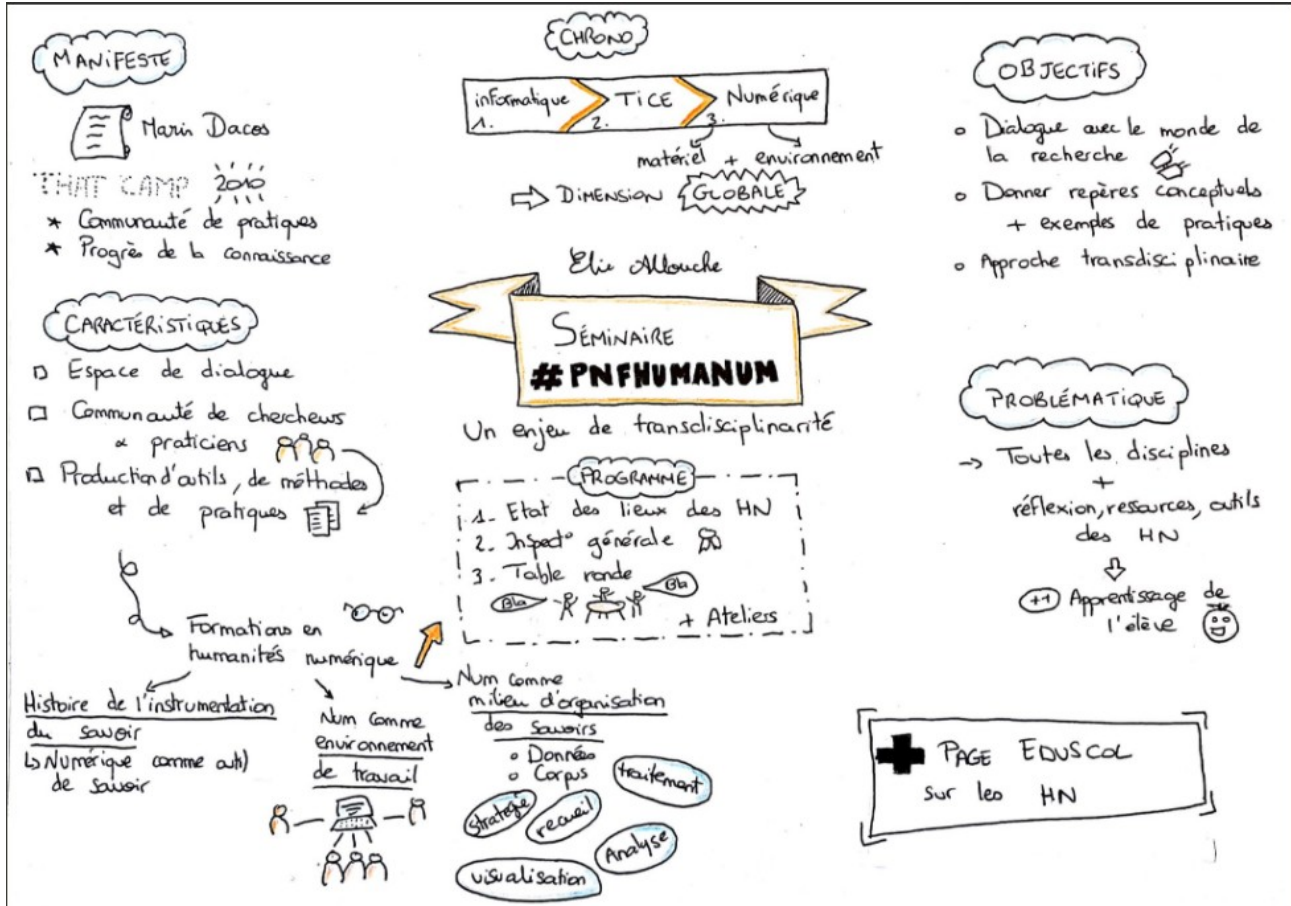 MANIFESTE
Marin Dacos
THAT CAMP 2010
* Communauté de pratiques
* Progrès de la connaissance
CARACTÉRISTIQUES
Espace de dialogue
Communauté de chercheurs
∝ praticiens
Production d'outils, de méthodes
et de pratiques
Formations en
humanités numérique
Histoire de l'instrumentation
du savoir
↳ Numérique comme outil
de savoir
Num comme
environnement
de travail
Num comme
milieu d'organisation
des savoirs
o Données
o Corpus
traitement
stratégie
recueil
Analyse
visualisation
CHRONO
informatique
1.
TICE
2.
Numérique
3.
matériel + environnement
⇨ DIMENSION GLOBALE
Elie Allouche
SÉMINAIRE
#PNFHUMANUM
Un enjeu de transdisciplinarité
PROGRAMME
1- Etat des lieux des HN
2. Inspect° générale
3. Table ronde
Bla
Bla
+ Ateliers
OBJECTIFS
o Dialogue avec le monde de
la recherche
o Donner repères conceptuels
+ exemples de pratiques
o Approche transdisciplinaire
PROBLÉMATIQUE
→ Toutes les disciplines
+
réflexion, ressources, outils
des HN
+1 Apprentissage de
l'élève
+ PAGE EDUSCOL
sur les HN